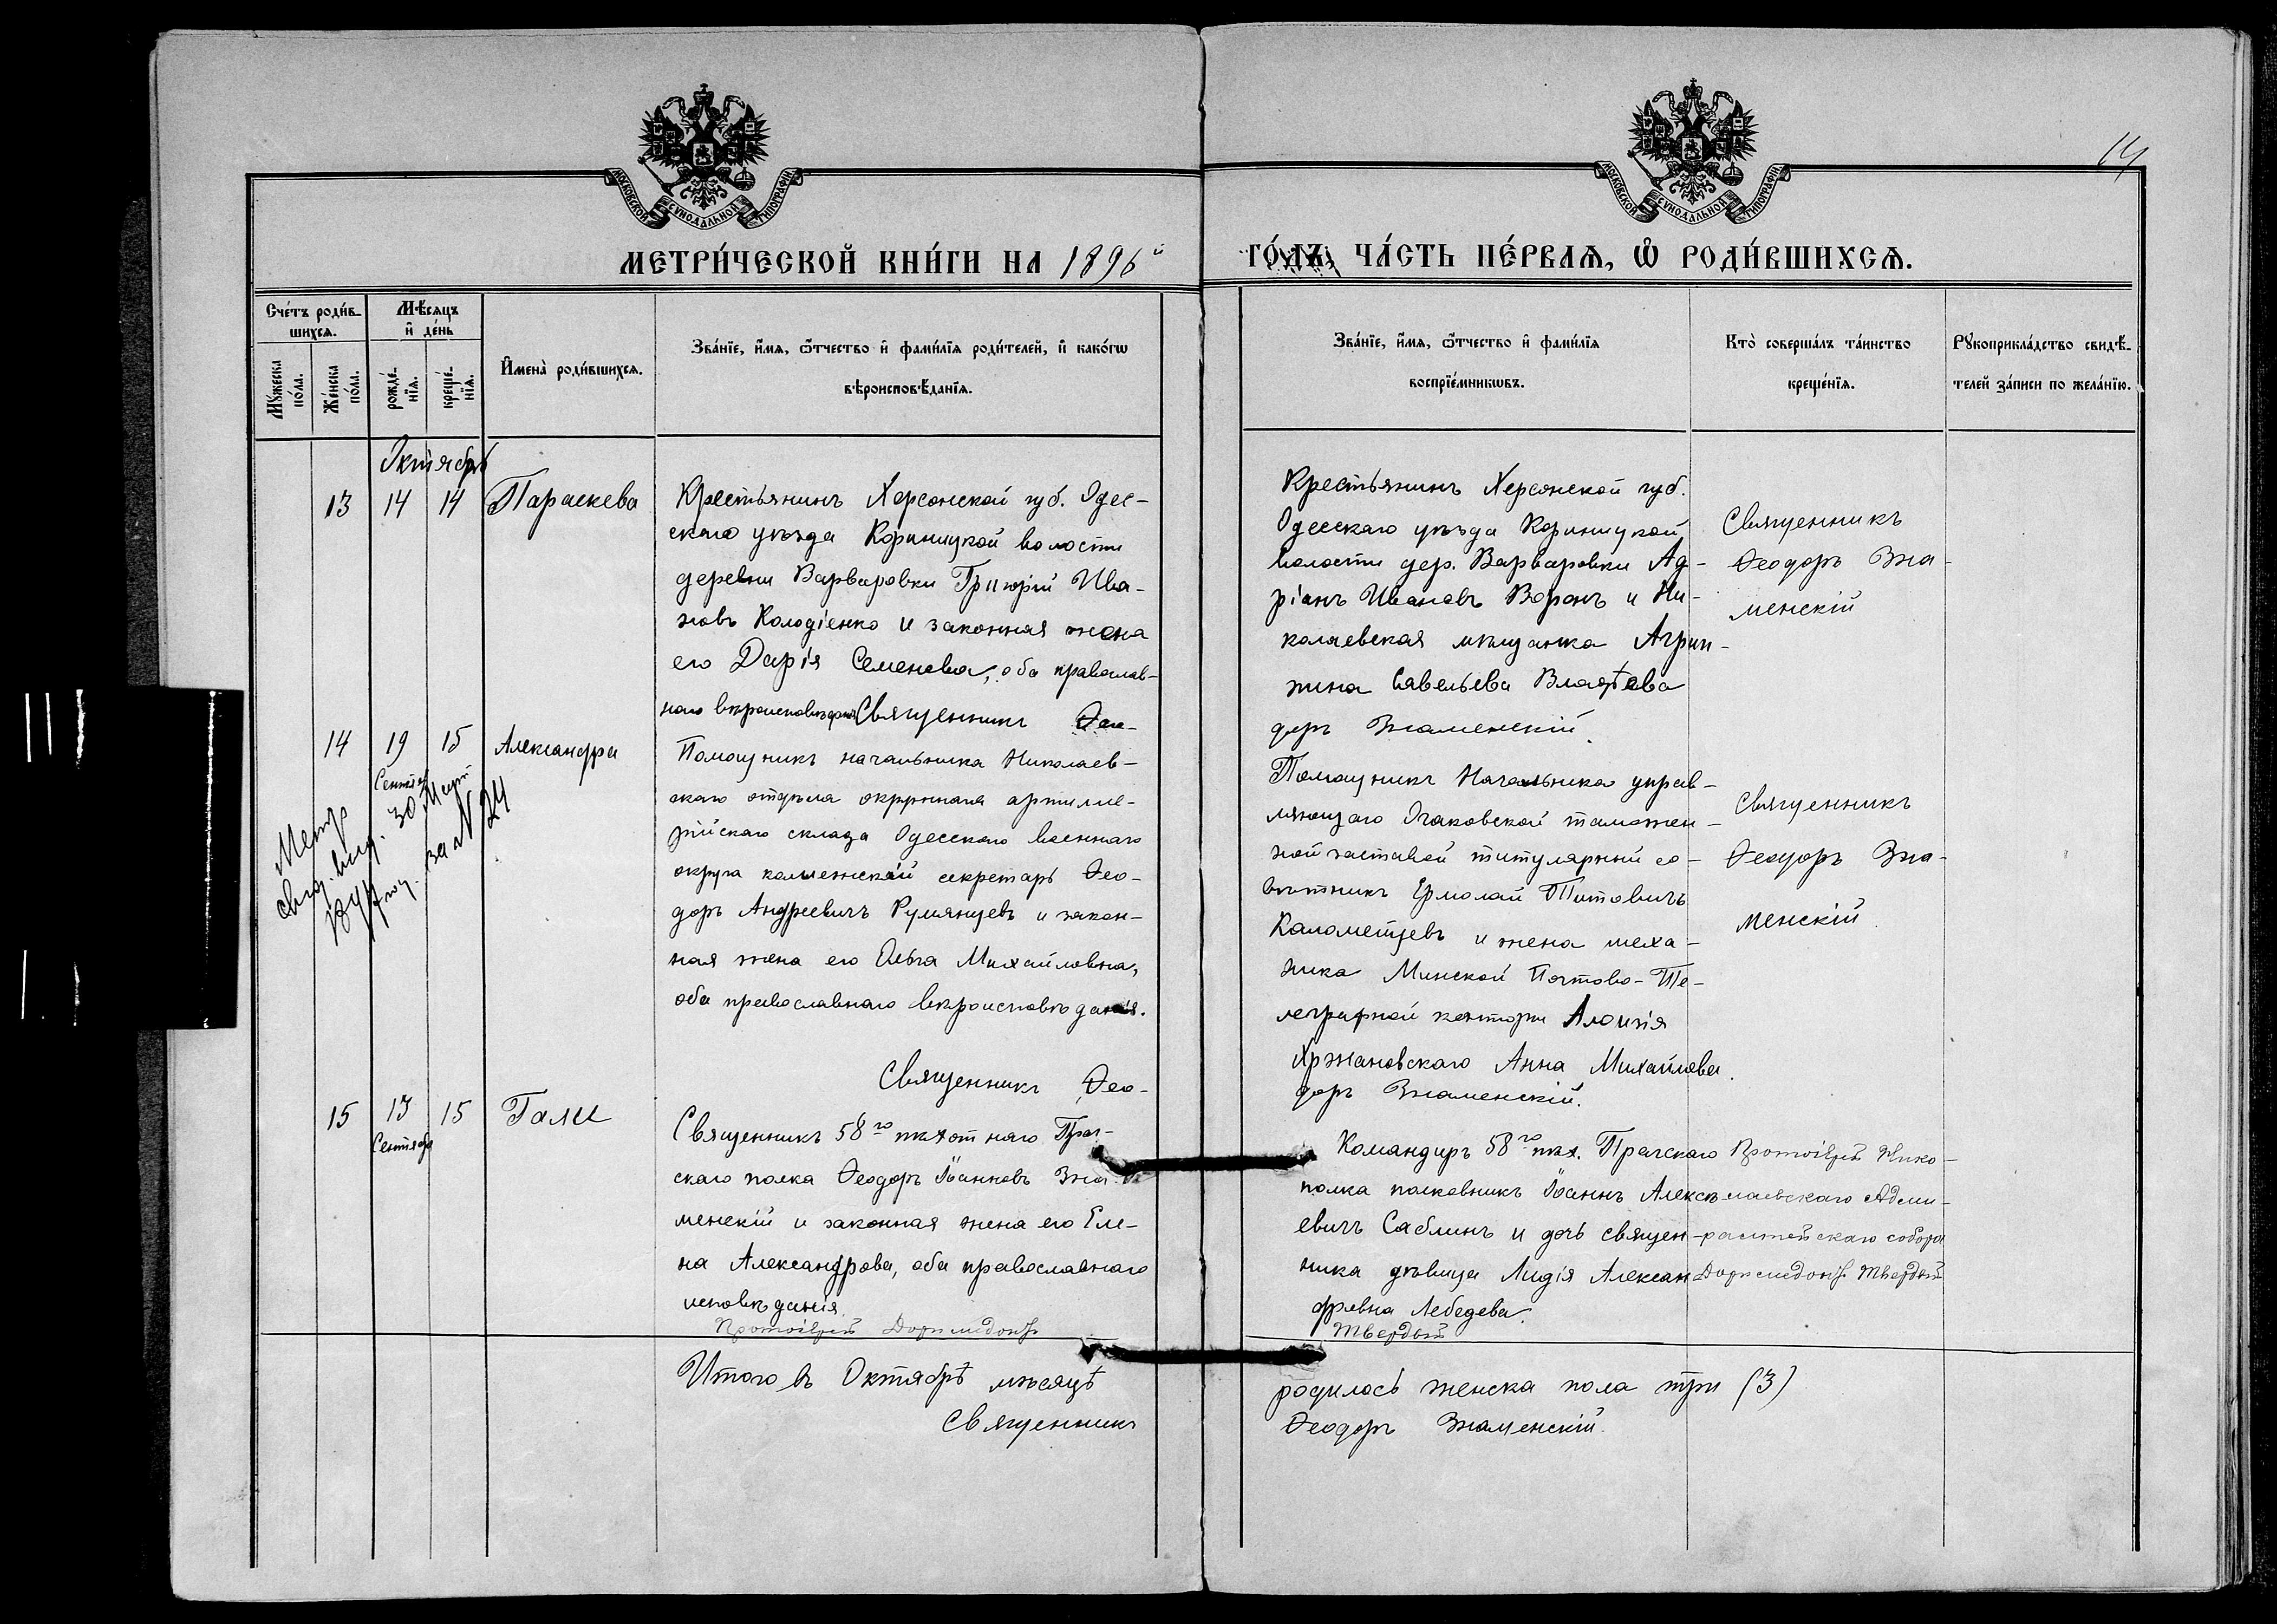 14
МОСКОВСКОЙ СѴНОДАЛЬНОЙ ТИПОГРАФІИ
МОСКОВСКОЙ СѴНОДАЛЬНОЙ ТИПОГРАФІИ
МЕТРИ́ЧЕСКОЙ КНИ́ГИ НА 1896й
ГО́ДЪ, ЧА́СТЬ ПЕ́РВАѦ, Ѡ҆ РОДИ́ВШИХСѦ.
Сче́тъ роди́в-
шихсѧ.
Мꙋ́жеска
по́ла.
Же́нска
по́ла.
Мѣ́сѧцъ
и҆ де́нь
рожде́-
нїѧ.
креще́-
нїѧ.
И҆мена̀ роди́вшихсѧ.
Зва́нїе, и҆́мѧ, ѻ҆́тчество и҆ фами́лїѧ роди́телей, и҆ како́гѡ
вѣроисповѣ́данїѧ.
Зва́нїе, и҆́мѧ, ѻ҆́тчество и҆ фами́лїѧ
воспрїе́мникѡвъ.
Кто̀ соверша́лъ та́инство
креще́нїѧ.
Рꙋкоприкла́дство свидѣ́-
телей за́писи по жела́нїю.
Октябрь
13 14 14 Параскева
Крестьянинъ Херсонской губ. Одес-
скаго уѣзда Кориницкой волости
деревни Варваровки Григорій Ива-
новъ Колодіенко и законная жена
его Дарія Семенова, оба православ-
наго вѣроисповѣданія Священникъ Ѳео-
Крестьянинъ Херсонской губ.
Одесскаго уѣзда Кориницкой
волости дер. Варваровки Ад-
ріанъ Ивановъ Воронъ и Ни-
колаевская мѣщанка Агрип-
пина Савельева
доръ Знаменскій.
Священникъ
Ѳеодоръ Зна-
менскій
14 19 15 Александра
Сентяб
Метр
свид. выд. 30 Март
1897 год. за № 24
Помощникъ начальника Николаев-
скаго отдѣла окружнаго артилле-
рійскаго склада Одесскаго военнаго
округа коллежскій секретарь Ѳео-
доръ Андреевичъ Румянцевъ и закон-
ная жена его Ольга Михайловна,
оба православнаго вѣроисповѣданія.
Священникъ Ѳео-
Помощникъ Начальника управ-
ляющаго Очаковской таможен-
ной заставой титулярный со-
вѣтникъ Ермолай Титовичъ
Каламетцевъ и жена меха-
ника Минской Почтово-Те-
леграфной конторы Алоизія
Хржановскаго Анна Михайлова.
доръ Знаменскій.
Священникъ
Ѳеодоръ Зна-
менскій
15 13 15 Гали
Сентября
Священникъ 58го пѣхотнаго Праг-
скаго полка Ѳеодоръ Іоанновъ Зна-
менскій и законная жена его Еле-
на Александрова, оба православнаго
исповѣданія.
Протоіерей Доримедонтъ
Командиръ 58го пѣх. Прагскаго
полка полковникъ Іоаннъ Алексѣ-
евичъ Саблинъ и дочь священ-
ника дѣвица Лидія Алексан
дровна Лебедева.
Твердый
Протоіерей Нико-
лаевскаго Адми-
ралтейскаго собора
Доримедонтъ Твердый
Итого въ Октябрѣ мѣсяцѣ
родилось женска пола три (3)
Священникъ
Ѳеодоръ Знаменскій.